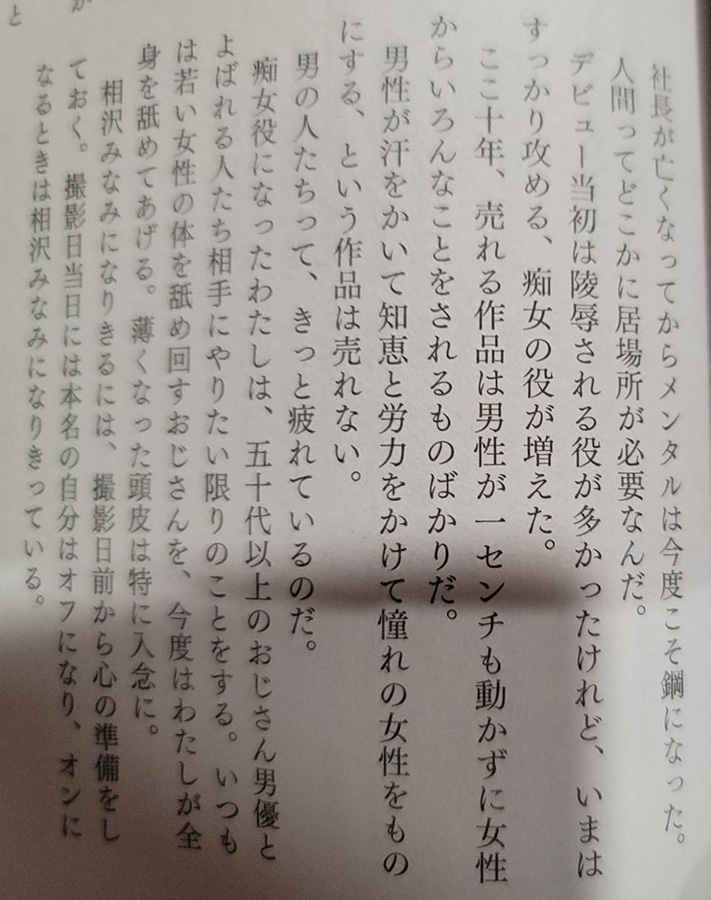 社長が亡くなってからメンタルは今度こそ鋼になった。
人間ってどこかに居場所が必要なんだ。
デビュー当初は陵辱される役が多かったけれど、いまは
すっかり攻める、痴女の役が増えた。
ここ十年、売れる作品は男性が一センチも動かずに女性
からいろんなことをされるものばかりだ。
男性が汗をかいて知恵と労力をかけて憧れの女性をもの
にする、という作品は売れない。
男の人たちって、きっと疲れているのだ。
痴女役になったわたしは、五十代以上のおじさん男優と
よばれる人たち相手にやりたい限りのことをする。いつも
は若い女性の体を舐め回すおじさんを、今度はわたしが全
身を舐めてあげる。薄くなった頭皮は特に入念に。
相沢みなみになりきるには、撮影日前から心の準備をし
ておく。撮影日当日には本名の自分はオフになり、オンに
なるときは相沢みなみになりきっている。
が
と